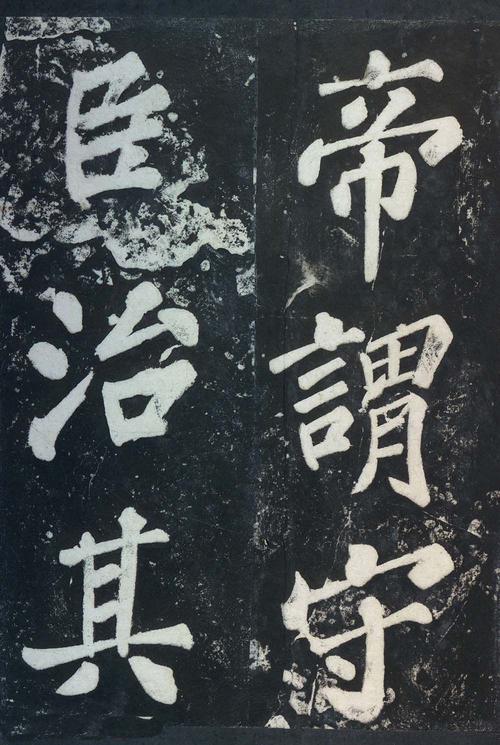 帝謂守
臣治其